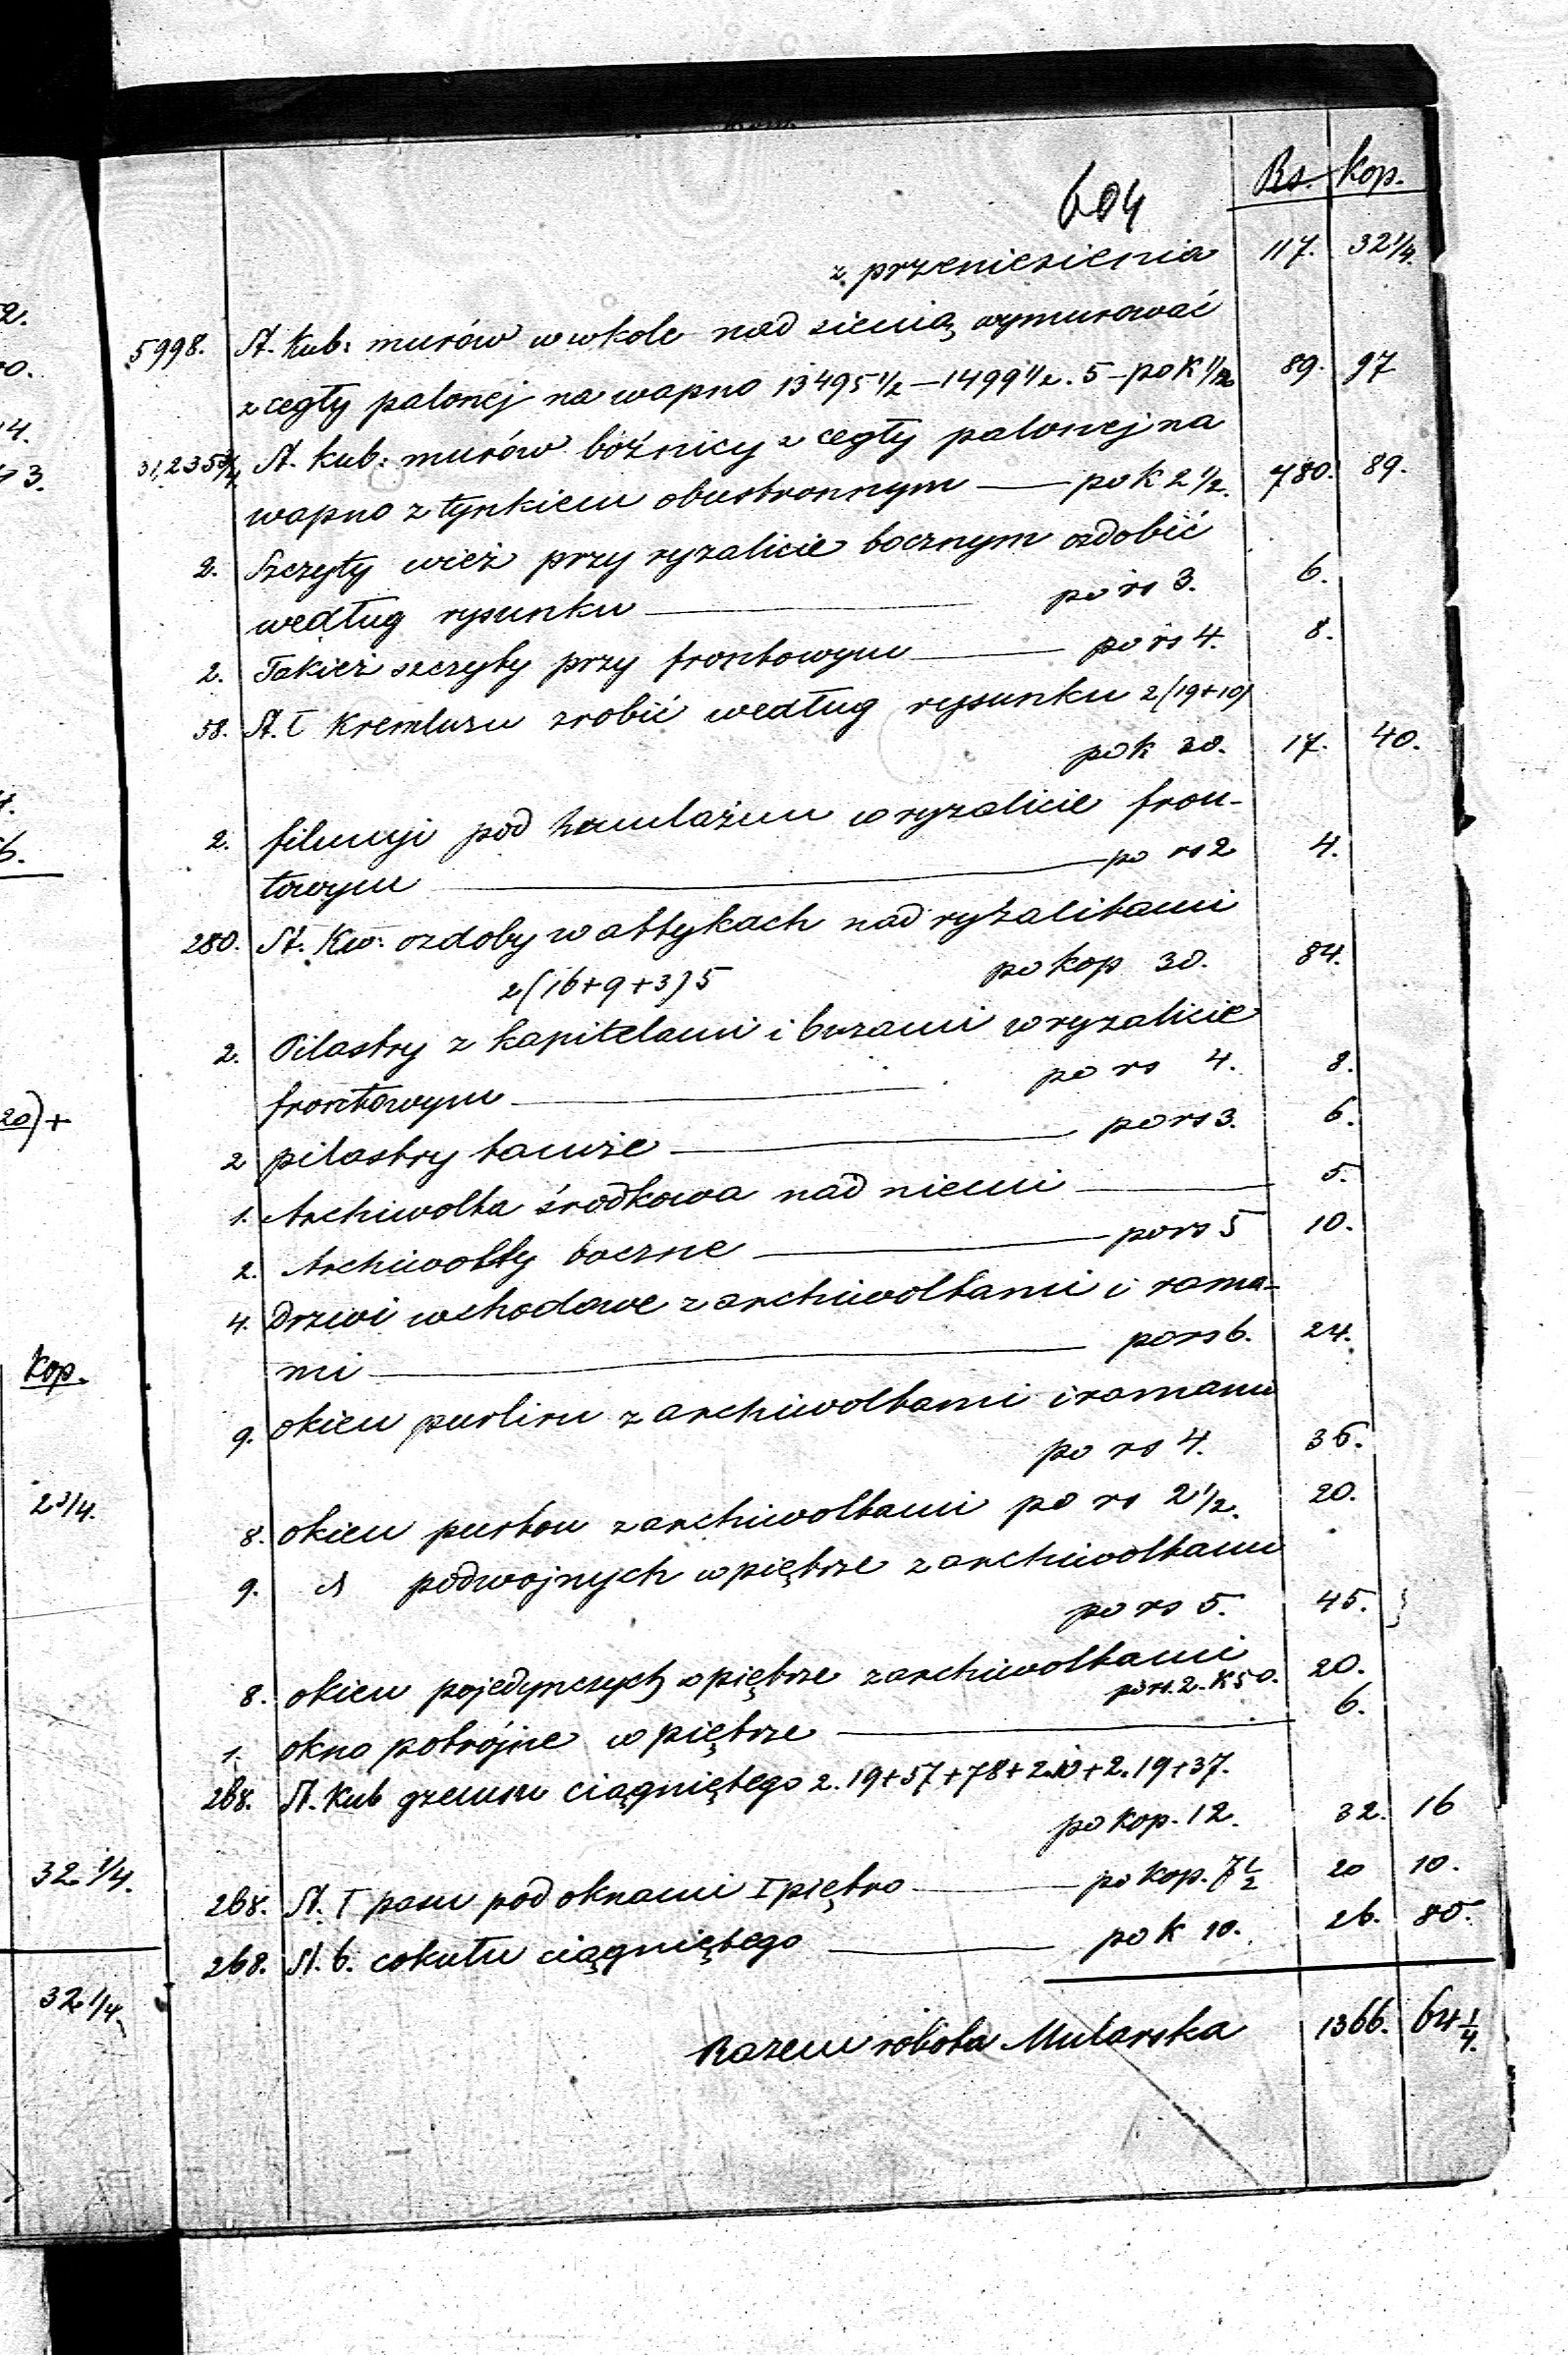 604
Rs. Kop.
z przeniesienia 117. 32 1/4.
5998. St. Kub: murów wokole nad sienią wymurować
z cegły palonej na wapno 13495 1/2 — 1499 1/2 . 5 — po K 1 1/2 89. 97
31,235 3/4 St. Kub: murów bóźnicy z cegły palonej na
wapno z tynkiem obustronnym — po k 2 1/2. 780. 89.
2. Szczyty wież przy ryzalicie bocznym ozdobić
według rysunku — po rs 3. 6.
2. Takież szczyty przy frontowym — po rs 4. 8.
58. St. I Kremlusu zrobić według rysunku 2(19+10)
po k 30. 17. 40.
2. filungi pod w ryzalicie fron-
towym — po rs 2 4.
280. St. Kw: ozdoby w attykach nad ryzalitami
2(16+9+3)5 po kop 30. 84.
2. Pilastry z kapitelami i bazami w ryzalicie
frontowym — po rs 4. 8.
2 pilastry tamże — po rs 3. 6.
1. Archiwolta środkowa nad niemi — 5.
2. Archiwolty boczne — po rs 5 10.
4. Drzwi wchodowe z archiwoltami i rama-
mi — po rs 6. 24.
9. okien z archiwoltami i ramami
po rs 4. 36.
8. okien z archiwoltami po rs 2 1/2. 20.
9. podwojnych w piętrze z archiwoltami
po rs 5. 45.
8. okien pojedynczych w piętrze z archiwoltami
po rs. 2. K 50. 20.
1. okno potrójne w piętrze — 6.
268. St. Kub gzemsu ciągniętego 2.19+57+78+2.10+2.19+37.
po kop. 12. 32. 16
268. St. I pasu pod oknami I piętro — po kop. 7 1/2 20 10.
268. St. b. cokułu ciągniętego — po k 10. 26. 80.
Razem robota Mularska 1366. 64 1/4.
20)+
Kop.
2 3/4.
32 1/4.
32 1/4